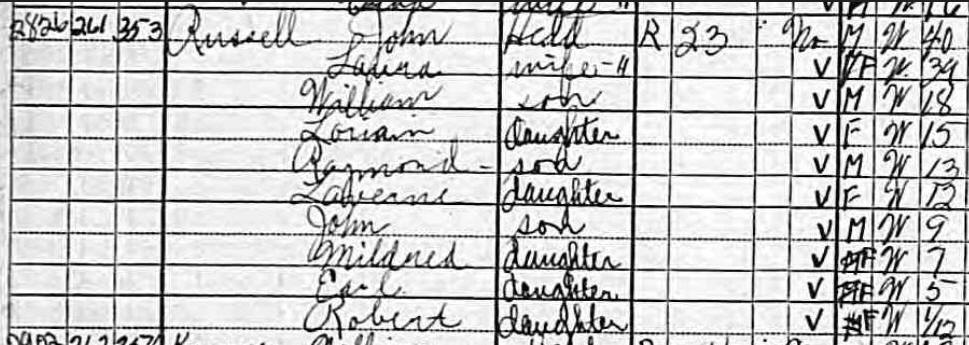 2826 261 353 Russell John Head R 23 No M W 40
Laura wife-H V F W 39
William son V M W 18
Lorain daughter V F W 15
Raymond - son V M W 13
Laverne daughter V F W 12
John son V M W 9
Mildred daughter V F W 7
Earl daughter V F W 5
Robert daughter V F W 1/12